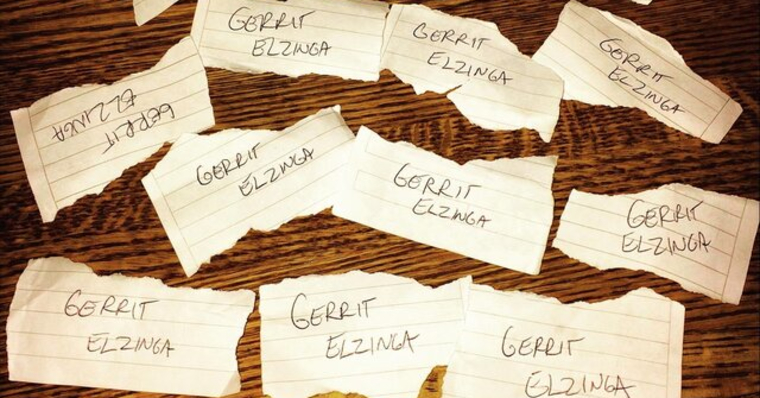 GERRIT
ELZINGA
GERRIT
ELZINGA
GERRIT
ELZINGA
GERRIT
ELZINGA
GERRIT
ELZINGA
GERRIT
ELZINGA
GERRIT
ELZINGA
GERRIT
ELZINGA
GERRIT
ELZINGA
GERRIT
ELZINGA